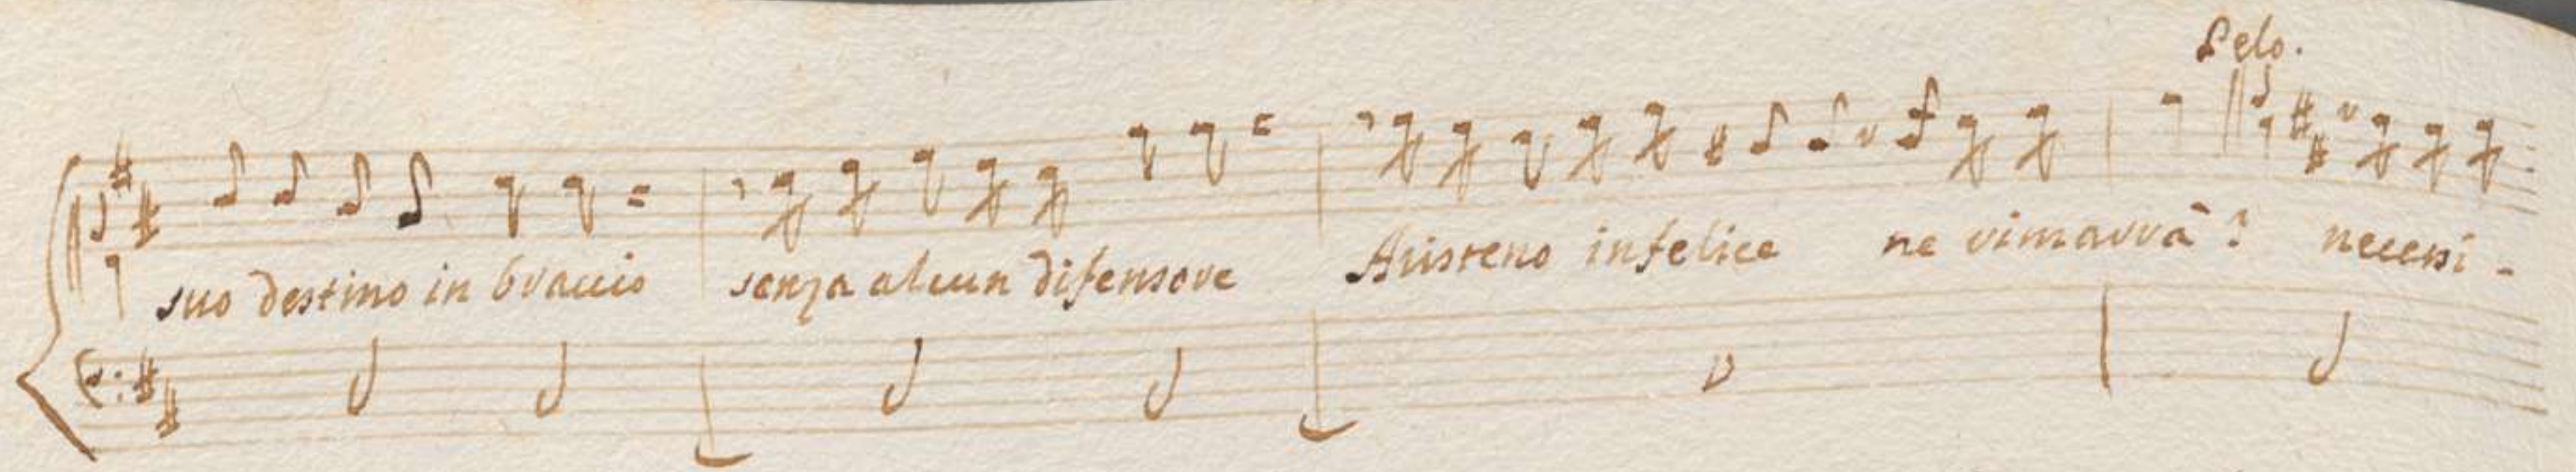 Selo.
suo destino in braccio senza alcun difensore Aristeno infelice ne rimarrà? necessi-